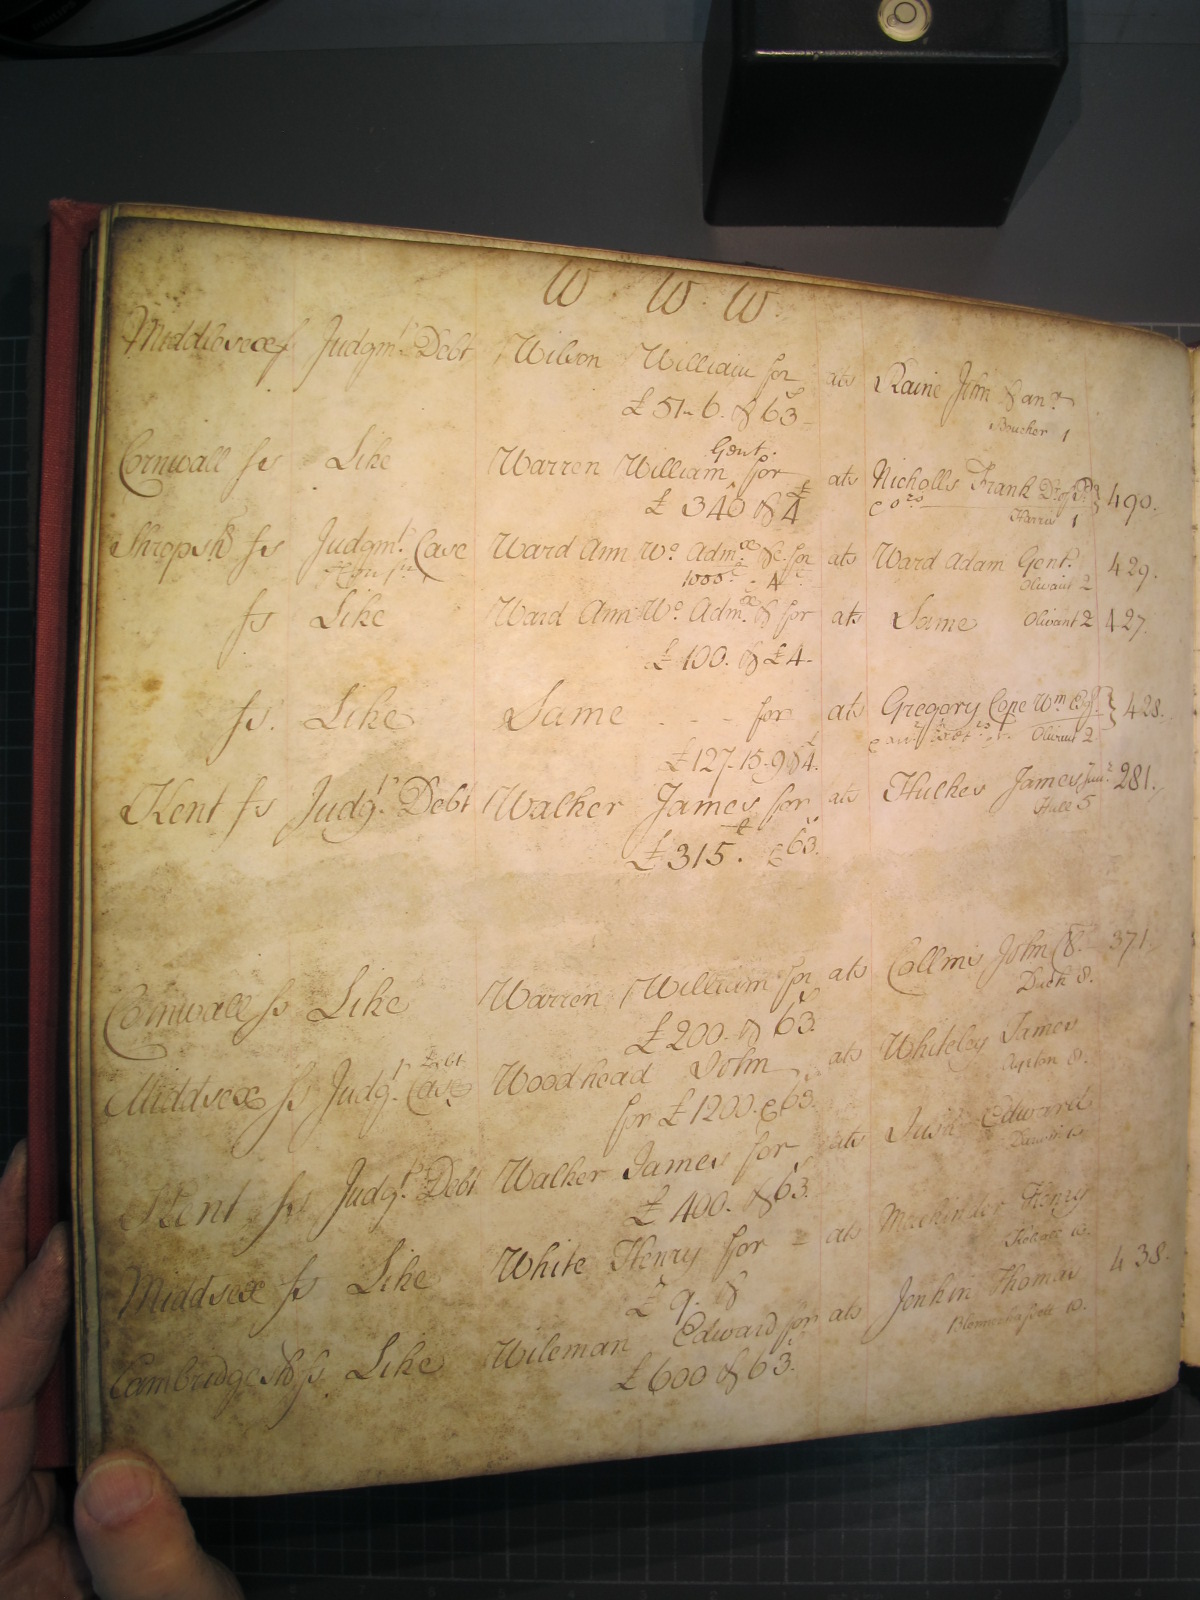 W. W. W.
Middlesex Judgmt. Debt Wilson William for ats Raine John & anr.
£51-6. & 63 Boucher 1
Gent.
Cornwall ss Like Warren William for ats Nicholls Frank Dr of 490.
£340 & 4 Harris 1
Shropsh ss Judgmt. Case Ward Ann Wo. Admx. &c. for ats Ward Adam Gent. 429.
1000 - 4 Olivant 2
ss Like Ward Ann Wo. Admx. & for ats Same Olivant 2 427.
£100. & £4.
ss. Like Same - - for ats Gregory Cope Wm Esq. 428.
£127-15-9 & 4. Olivant 2
Kent ss Judgt. Debt Walker James for ats Hulkes James Junr. 281.
£315. & 63. Hull 5
Cornwall ss Like Warren William for ats Collins John 371.
£200. & 63 Duck 8.
Debt
Middsex ss Judgt. Case Woodhead John ats Whiteley James
for £1200. & 63. 8.
Kent ss Judgt. Debt Walker James for ats Edward
£400. & 63.
Middsex ss Like White Henry for - ats Mackinder Henry
£9. &
Cambridgesh ss Like Wileman Edward for ats Jenkin Thomas 438.
£600 & 63. Blennerhassett 10.